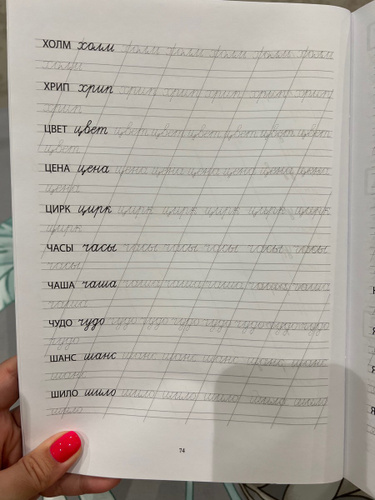 ХОЛМ холм холм холм холм холм холм
холм
ХРИП хрип хрип хрип хрип хрип хрип
хрип
ЦВЕТ цвет цвет цвет цвет цвет цвет цвет
цвет
ЦЕНА цена цена цена цена цена цена цена
цена
ЦИРК цирк цирк цирк цирк цирк цирк
цирк
ЧАСЫ часы часы часы часы часы часы
часы
ЧАША чаша чаша чаша чаша чаша чаша
чаша
ЧУДО чудо чудо чудо чудо чудо чудо чудо
чудо
ШАНС шанс шанс шанс шанс шанс шанс
шанс
ШИЛО шило шило шило шило шило шило
шило
74